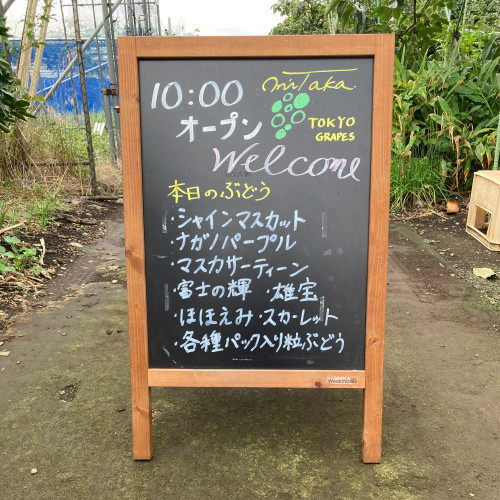 10:00
オープン
miTaka
TOKYO
GRAPES
Welcome
本日のぶどう
・シャインマスカット
・ナガノパープル
・マスカサーティーン
・富士の輝 ・雄宝
・ほほえみ・スカーレット
・各種パック入り粒ぶどう